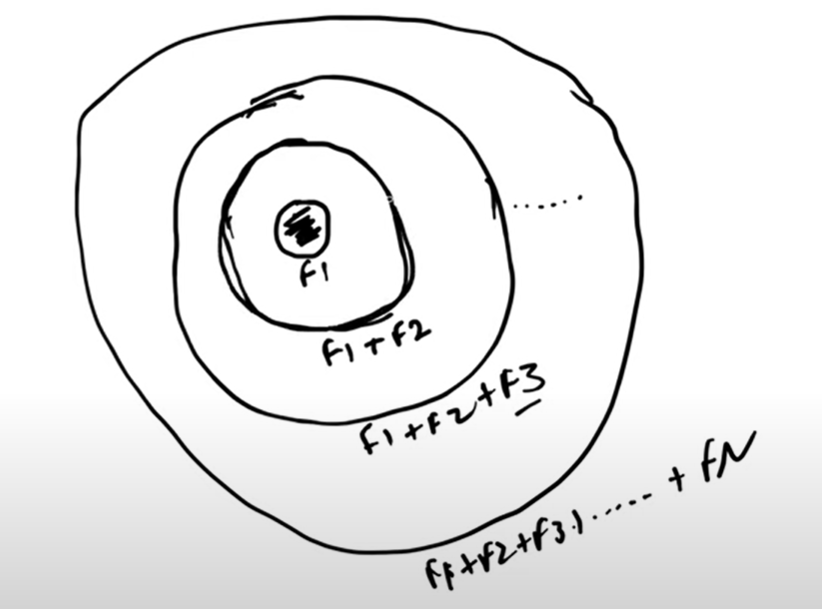 F1
F1+F2
F1+F2+F3
F1+F2+F3)......+FN